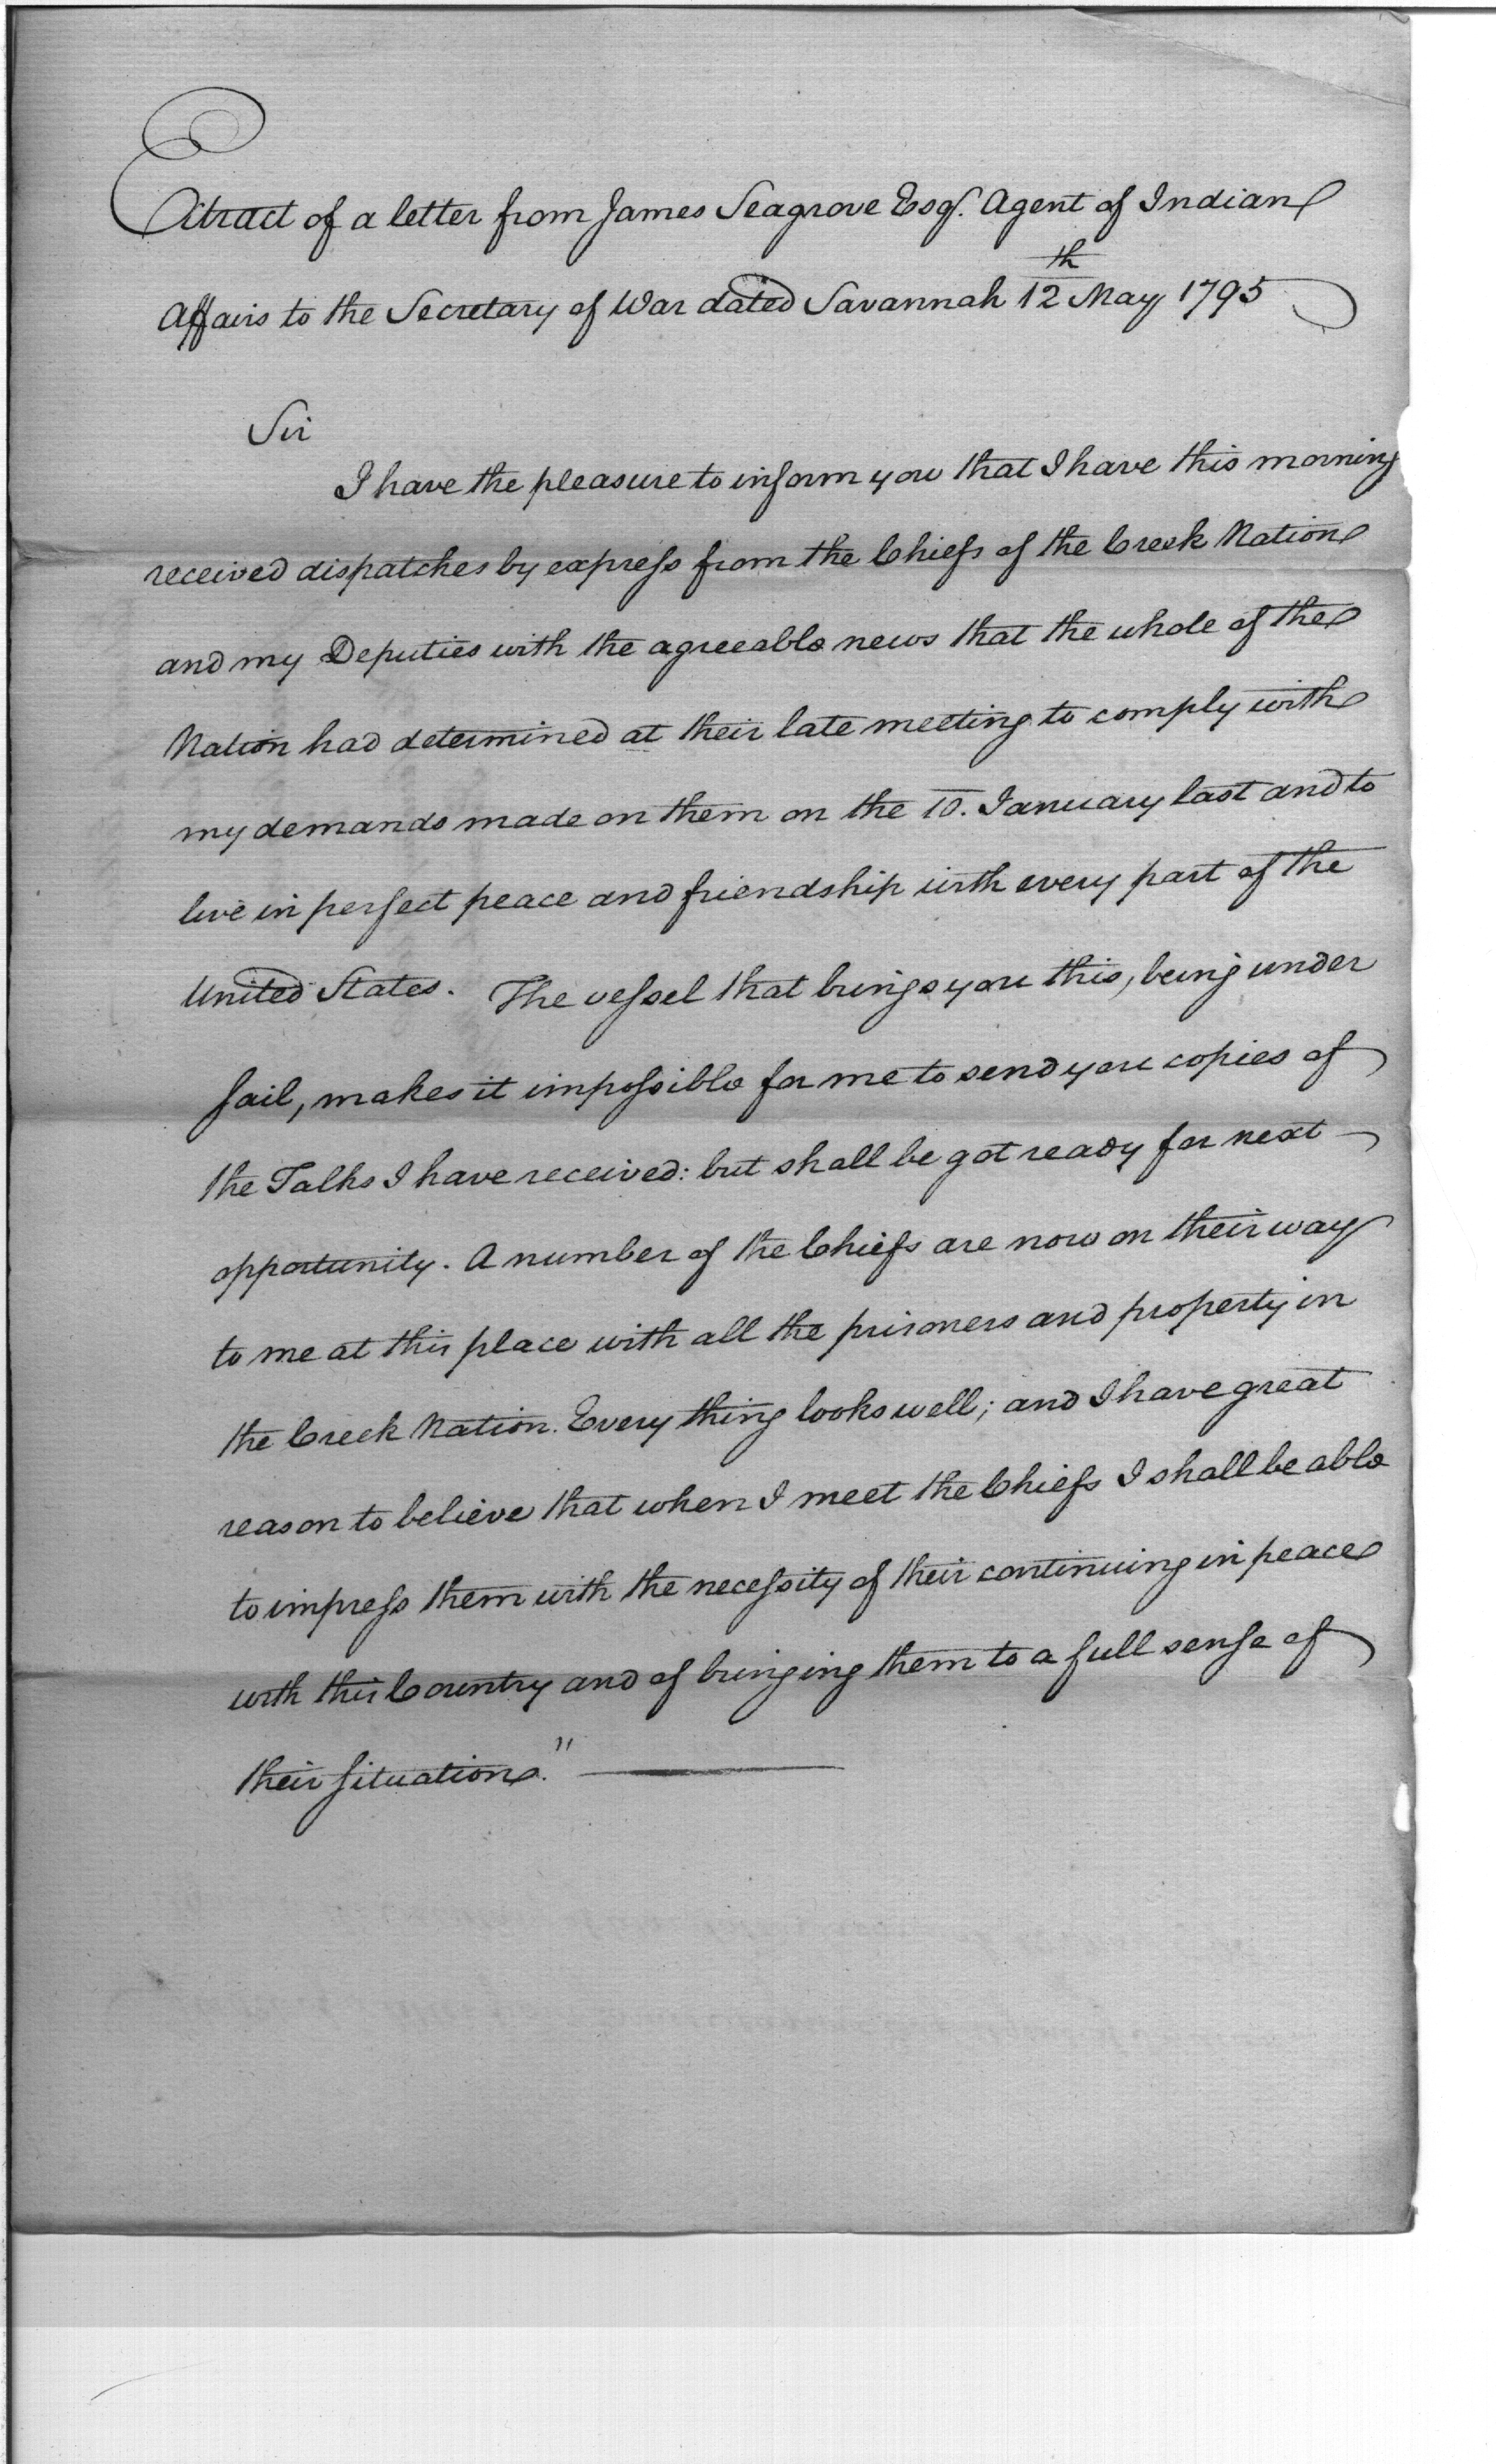 Extract of a letter from James Seagrove Esqr. Agent of Indian
Affairs to the Secretary of War dated Savannah 12th May 1795
Sir
I have the pleasure to inform you that I have this morning
received dispatches by express from the Chiefs of the Creek Nation
and my Deputies with the agreeable news that the whole of the
Nation had determined at their late meeting to comply with
my demands made on them on the 10. January last and to
live in perfect peace and friendship with every part of the
United States. The vessel that brings you this, being under
sail, makes it impossible for me to send you copies of
the Talks I have received: but shall be got ready for next
opportunity. A number of the Chiefs are now on their way
to me at this place with all the prisoners and property in
the Creek Nation. Every thing looks well; and I have great
reason to believe that when I meet the Chiefs I shall be able
to impress them with the necessity of their continuing in peace
with this Country and of bringing them to a full sense of
their situation."